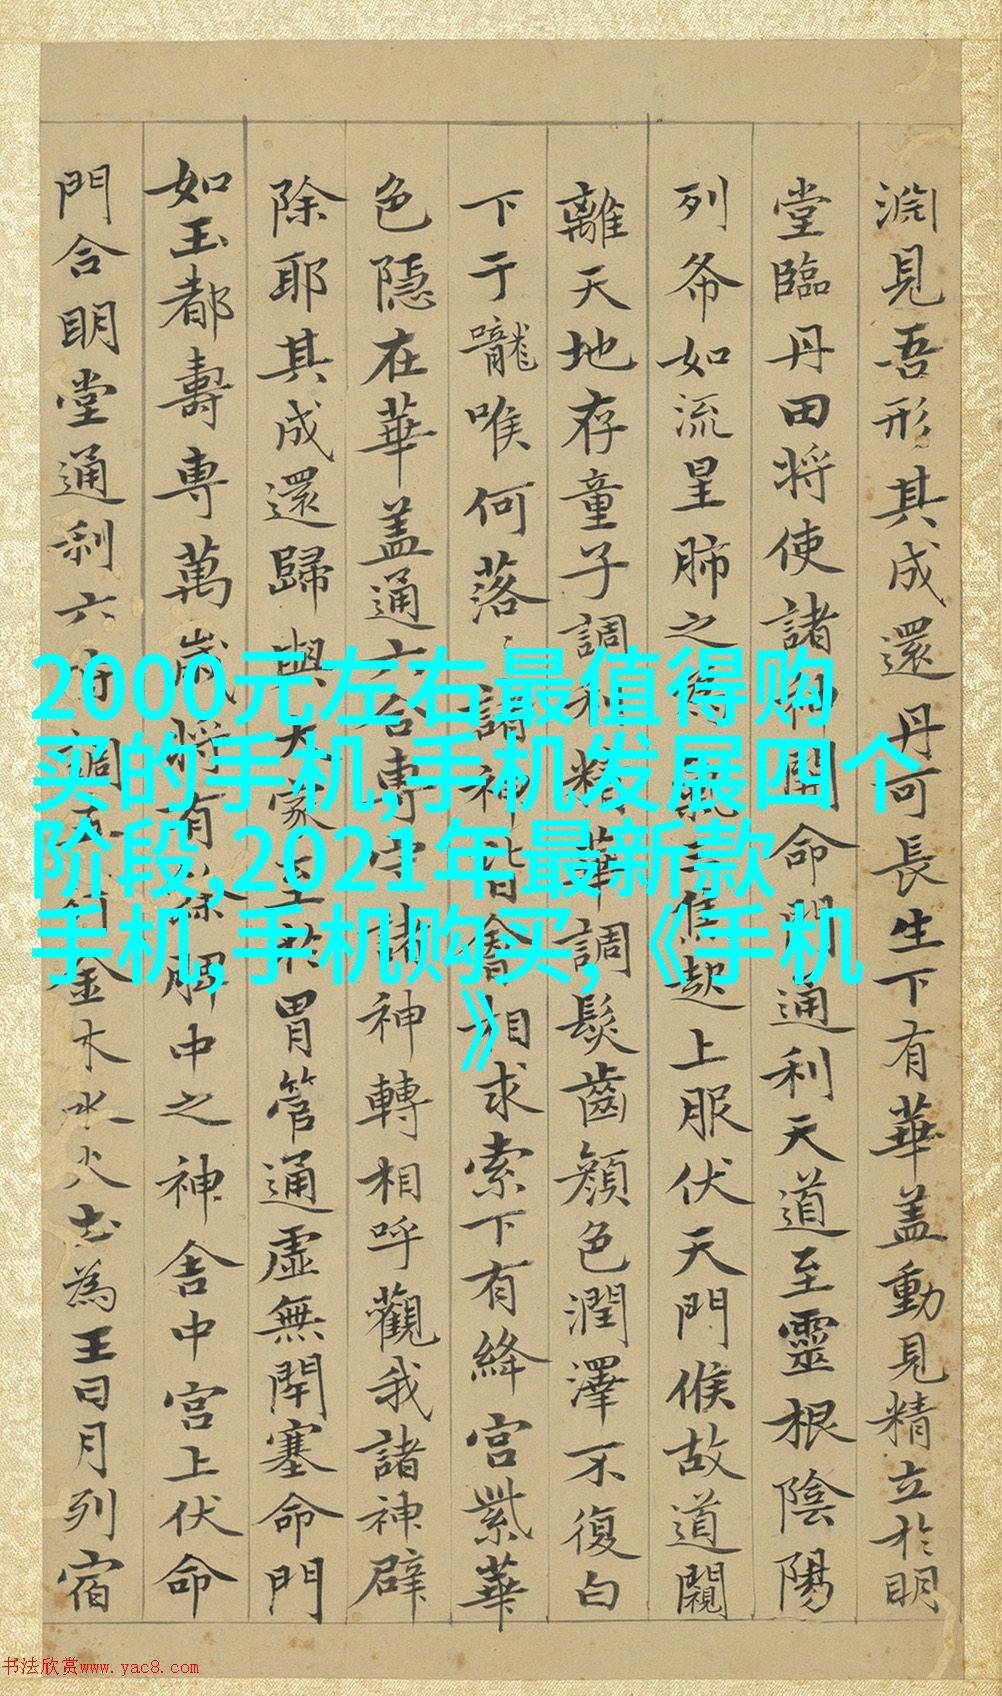 渊見吾形其成還丹可長生下有華盖動見精立於明
堂臨丹田将使諸神開命門通利天道至靈根陰陽
列布如流星肺之為氣三焦起上服伏天門候故道闚
離天地存童子調利精華調髮齒顔色潤澤不復白
下于嚨喉何落落諸神皆會相求索下有絳宮紫華
色隱在華盖通六合專守諸神轉相呼觀我諸神辟
除耶其成還歸與大家至於胃管通虛無閉塞命門
如玉都壽專萬歲将有餘脾中之神舍中宮上伏命
門合明堂通利六府調五行金木水火土為王日月列宿
2000元左右最值得购
买的手机,手机发展四个
阶段,2021年最新款
手机,手机购买,《手机
》
书法欣赏www.yac8.com